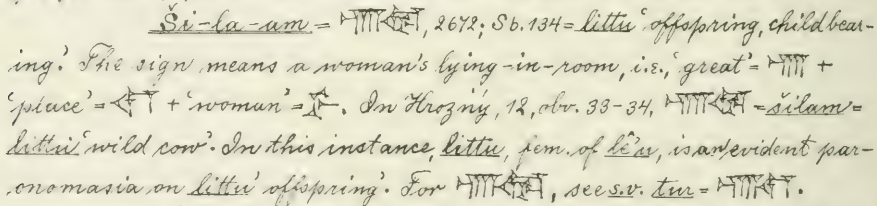 Ši-la-am = , 2672; Sb. 134 = littu 'offspring, child bear-
ing'. The sign means a woman's lying-in-room, i.e., 'great' = +
'place' = + 'woman' = . In Hrozný, 12, obv. 33-34, = šilam =
littu 'wild cow'. In this instance, littu, fem. of lê'u, is an evident par-
onomasia on littu 'offspring'. For , see s.v. tur = .